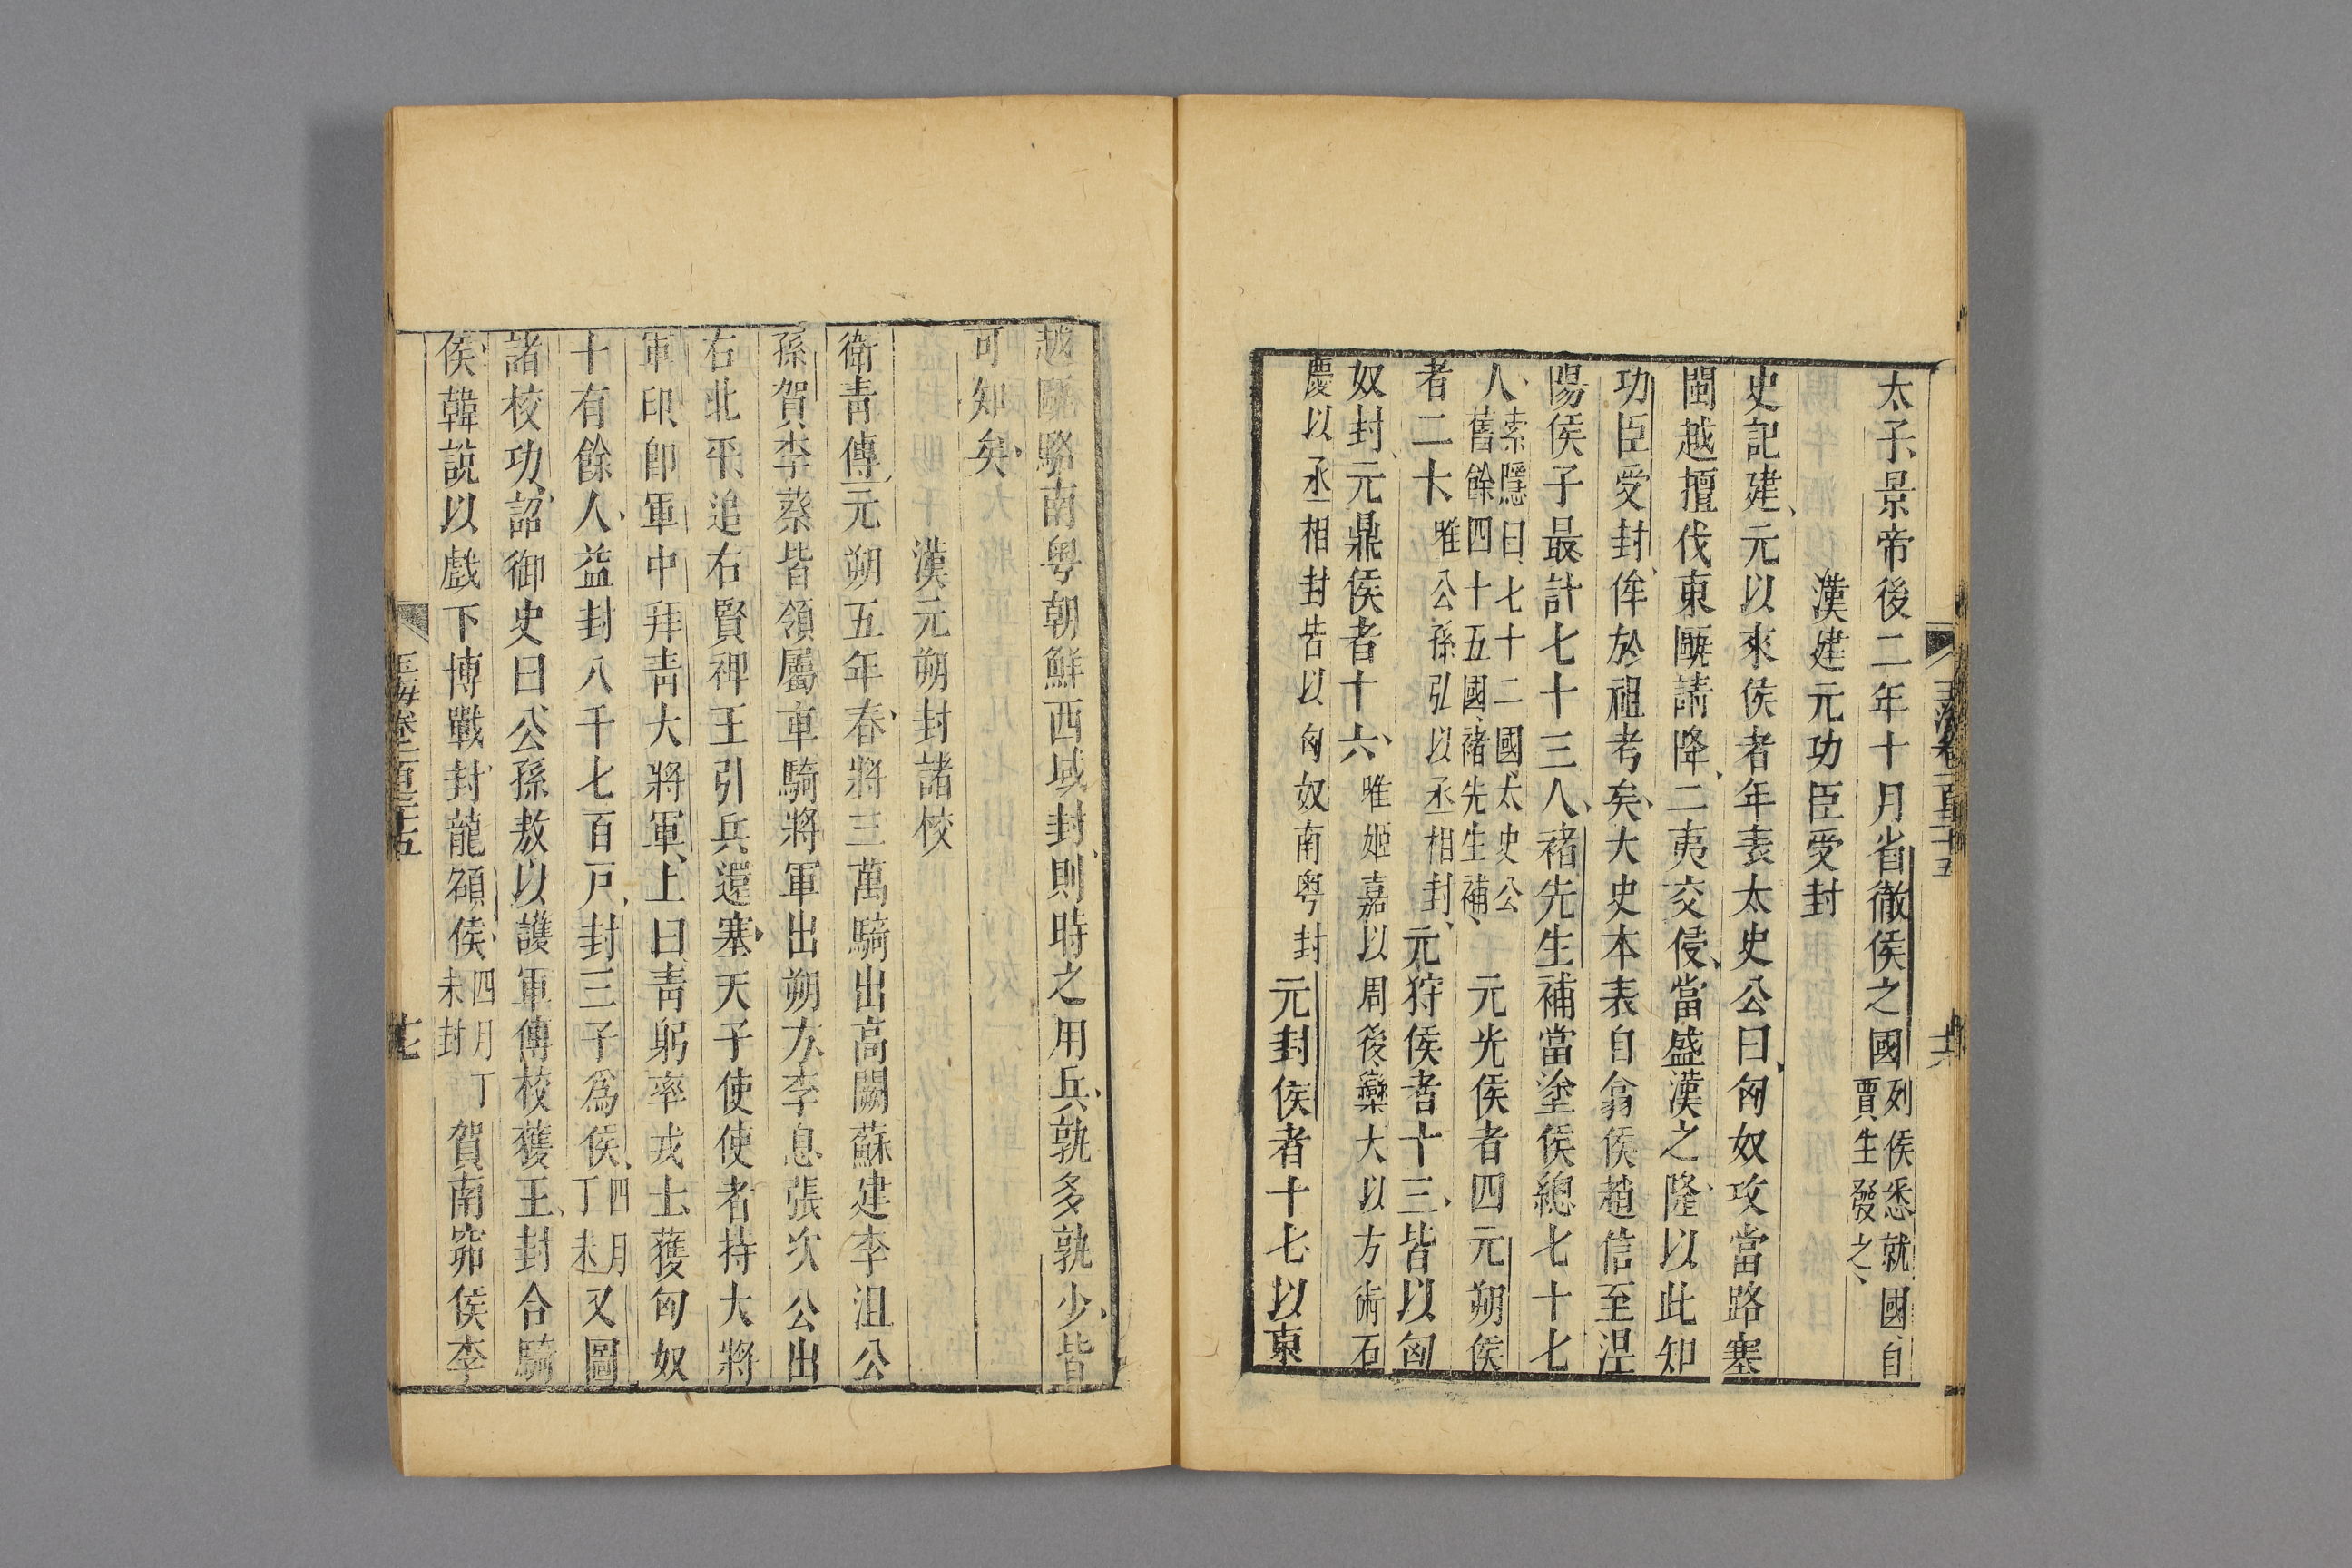 太子景帝後二年十月省徹侯之國列侯悉就國自賈生發之
漢建元功臣受封
史記建元以來侯者年表太史公曰匈奴攻當路塞
閩越擅伐東甌請降二夷交侵當盛漢之隆以此知
功臣受封侔於祖考矣大史本表自翕侯趙信至涅
陽侯子最計七十三人褚先生補當塗侯總七十七
人索隱曰七十二國太史公舊餘四十五國褚先生補元光侯者四元朔侯
者二十唯公孫弘以丞相封元狩侯者十三皆以匈
奴封元鼎侯者十六唯姬嘉以周後欒大以方術石
慶以丞相封皆以匈奴南粤封元封侯者十七以東
玉海卷一百三十五
十六
越甌駱南粤朝鮮西域封則時之用兵孰多孰少皆
可知矣
漢元朔封諸校
衛青傳元朔五年春將三萬騎出高闕蘇建李沮公
孫賀李蔡皆領屬車騎將軍出朔方李息張次公出
右北平追右賢裨王引兵還塞天子使使者持大將
軍印即軍中拜青大將軍上曰青躬率戎士獲匈奴
十有餘人益封八千七百戸封三子爲侯四月丁未又圖
諸校功詔御史曰公孫敖以護軍傳校獲王封合騎
侯韓說以戲下博戰封龍額侯四月丁未封賀南窌侯李
玉海卷一百三十五
十七